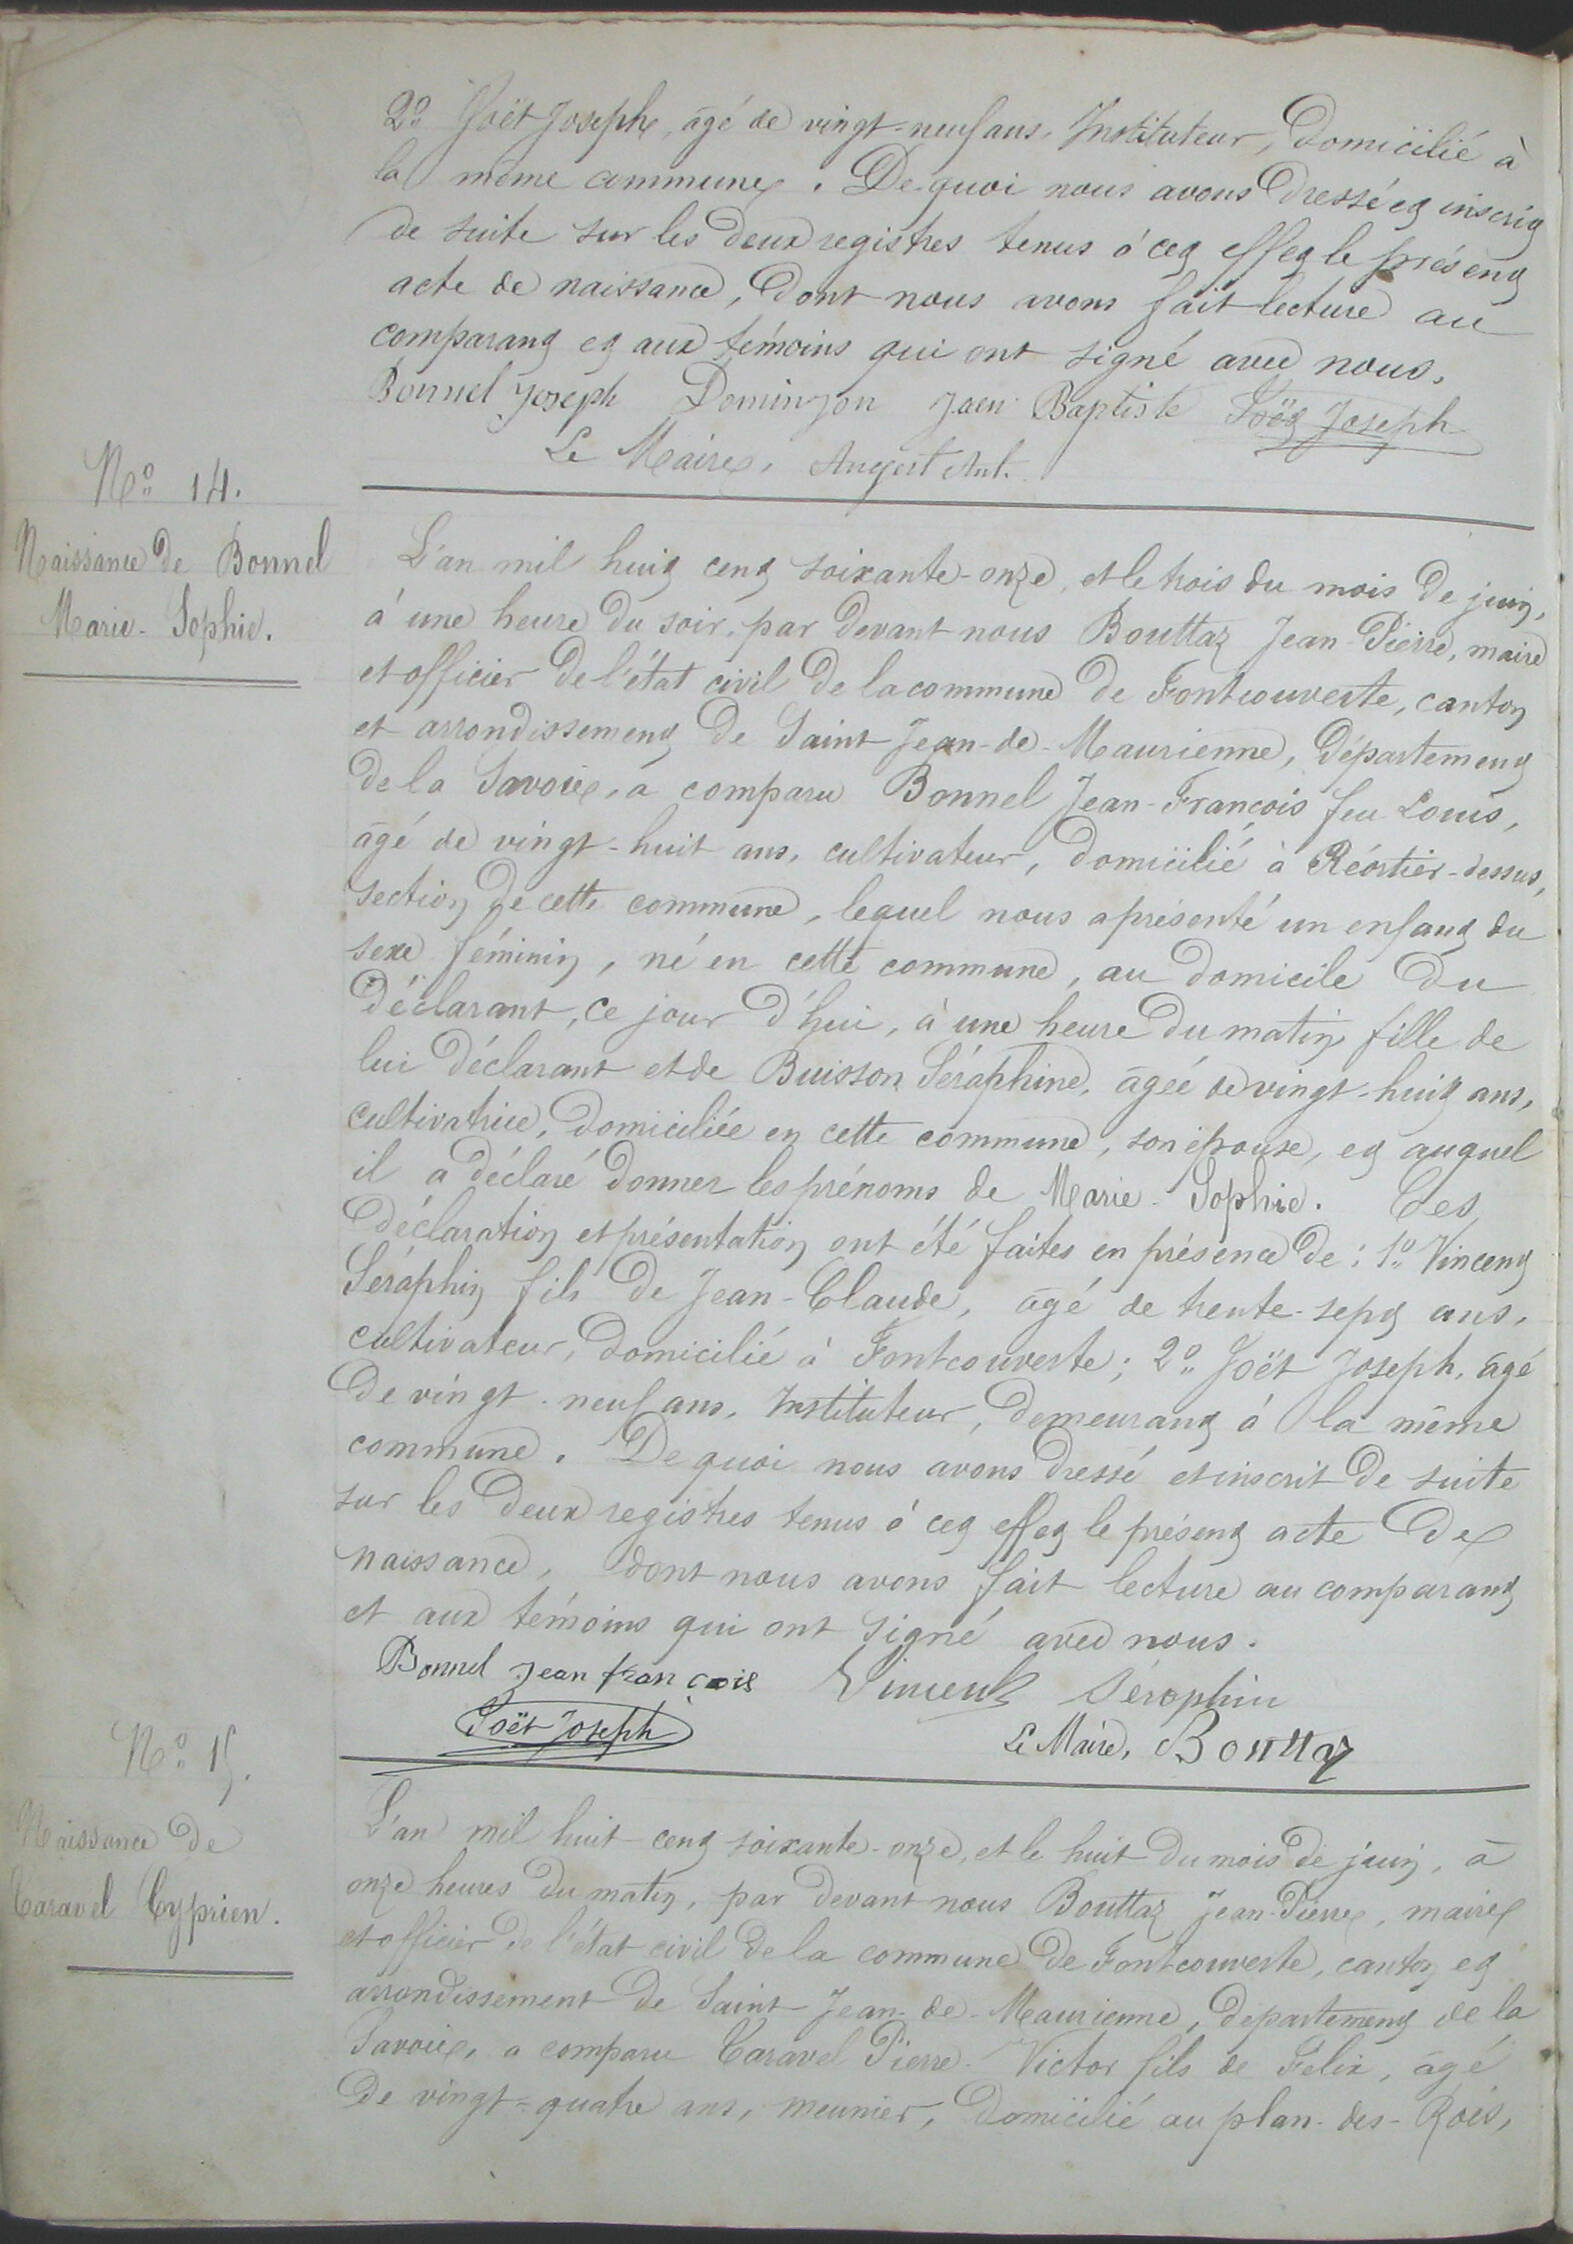 2° Joët Joseph, âgé de vingt-neuf ans, Instituteur, domicilié à
la même commune. De quoi nous avons dressé et inscrit
de suite sur les deux registres tenus à cet effet le présent
acte de naissance, dont nous avons fait lecture au
comparant et aux témoins qui ont signé avec nous.
Bonnel Joseph Dominjon Jaen Baptiste Joët Joseph
Le Maire, Augert Ant.
N° 14.
Naissance de Bonnel
Marie-Sophie.
L'an mil huit cent soixante-onze, et le trois du mois de juin,
à une heure du soir, par devant nous Bouttaz Jean-Pierre, maire
et officier de l'état civil de la commune de Fontcouverte, canton
et arrondissement de Saint-Jean-de-Maurienne, département
de la Savoie, a comparu Bonnel Jean-Francois feu Louis,
âgé de vingt-huit ans, cultivateur, domicilié à Réortier-dessus,
section de cette commune, lequel nous a présenté un enfant du
sexe féminin, né en cette commune, au domicile du
déclarant, ce jour d'hui, à une heure du matin, fille de
lui déclarant et de Buisson Séraphine, âgée de vingt-huit ans,
cultivatrice, domiciliée en cette commune, son épouse, et auquel
il a déclaré donner les prénoms de Marie-Sophie. Ces
déclaration et présentation ont été faites en présence de : 1° Vincent
Séraphin fils de Jean-Claude, âgé de trente-sept ans,
cultivateur, domicilié à Fontcouverte ; 2° Joët Joseph, âgé
de vingt-neuf ans, Instituteur, demeurant à la même
commune. De quoi nous avons dressé et inscrit de suite
sur les deux registres tenus à cet effet le présent acte de
naissance, dont nous avons fait lecture au comparant
et aux témoins qui ont signé avec nous.
Bonnel Jean françois Vincent Séraphin
Joët Joseph
Le Maire, Bouttaz
N° 15.
Naissance de
Taravel Cyprien.
L'an mil huit cent soixante-onze, et le huit du mois de juin, à
onze heures du matin, par devant nous Bouttaz Jean-Pierre, maire
et officier de l'état civil de la commune de Fontcouverte, canton et
arrondissement de Saint-Jean-de-Maurienne, département de la
Savoie, a comparu Taravel Pierre-Victor fils de Félix, âgé
de vingt-quatre ans, meunier, domicilié au plan-des-Rois,